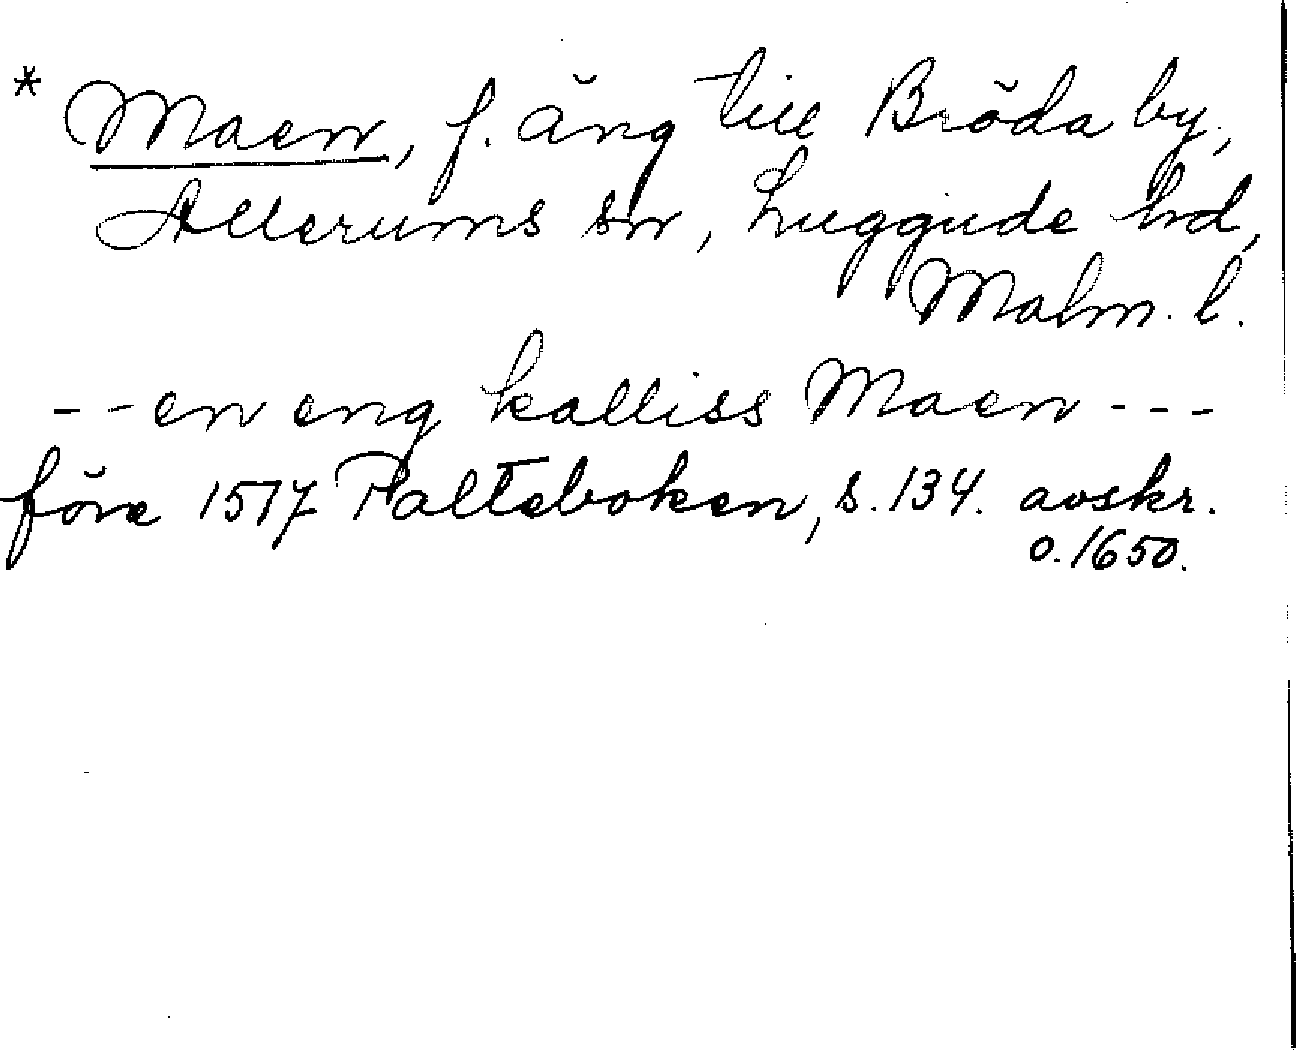 * Maen, f. äng till Bröda by,
Allerums sn, Luggude hd,
Malm. l.
-- en eng kalliss Maen ---
före 1517 Palteboken, s. 134. avskr.
o. 1650.